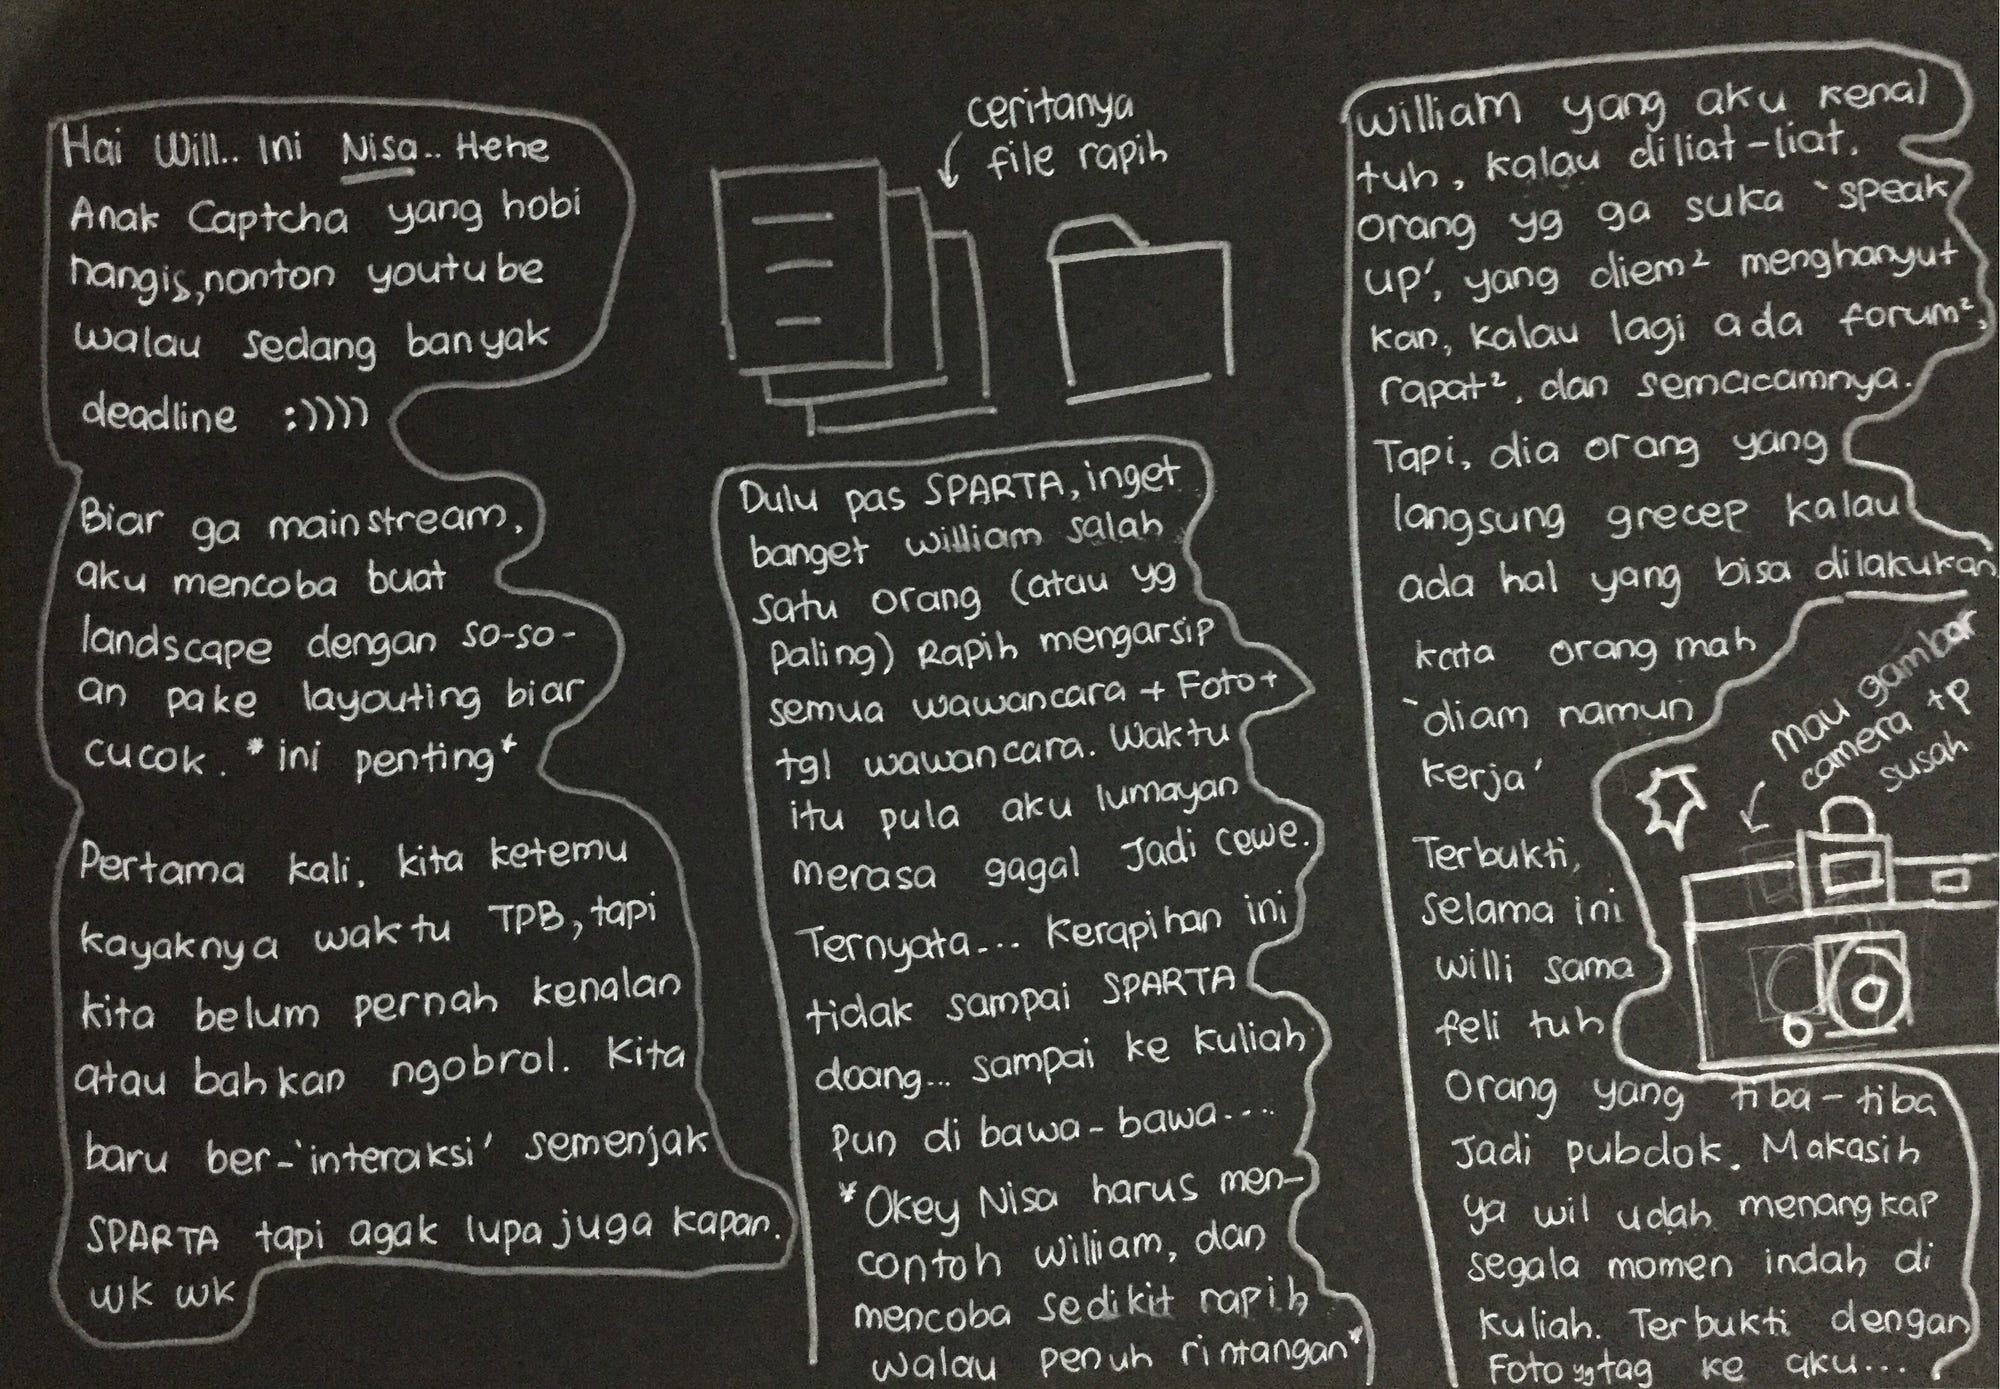 Hai Will.. Ini Nisa.. Hehe
Anak Captcha yang hobi
nangis, nonton youtube
walau sedang banyak
deadline :))))
Biar ga mainstream,
aku mencoba buat
landscape dengan so-so-
an pake layouting biar
cucok. *ini penting*
Pertama kali, kita ketemu
kayaknya waktu TPB, tapi
kita belum pernah kenalan
atau bahkan ngobrol. Kita
baru ber-'interaksi' semenjak
SPARTA tapi agak lupa juga kapan.
wk wk
ceritanya
file rapih
Dulu pas SPARTA, inget
banget william salah
satu orang (atau yg
paling) Rapih mengarsip
semua wawancara + Foto +
tgl wawancara. Waktu
itu pula aku lumayan
merasa gagal Jadi cewe.
Ternyata... kerapihan ini
tidak sampai SPARTA
doang... sampai ke kuliah
pun di bawa-bawa....
*Okey Nisa harus men-
contoh william, dan
mencoba sedikit rapih
walau penuh rintangan*
william yang aku kenal
tuh, kalau diliat-liat,
orang yg ga suka 'speak
up', yang diem² menghanyut
kan, kalau lagi ada forum²,
rapat², dan semacamnya.
Tapi, dia orang yang
langsung grecep kalau
ada hal yang bisa dilakukan
kata orang mah
'diam namun
kerja'
mau gambar
camera tp
susah
Terbukti,
selama ini
willi sama
feli tuh
Orang yang tiba-tiba
Jadi pubdok. Makasih
ya wil udah menangkap
segala momen indah di
kuliah. Terbukti dengan
Foto yg tag ke aku...